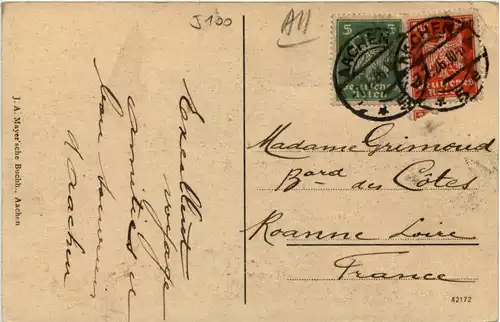 J 100
All
5
AACHEN
AACHEN
Deutsches
Reich
Excellent
voyage
amitiés et
bon souvenir
d'Aachen
J. A. Mayer'sche Buchh., Aachen
Madame Grimoud
Bard des Côtes
Roanne Loire
France
42172